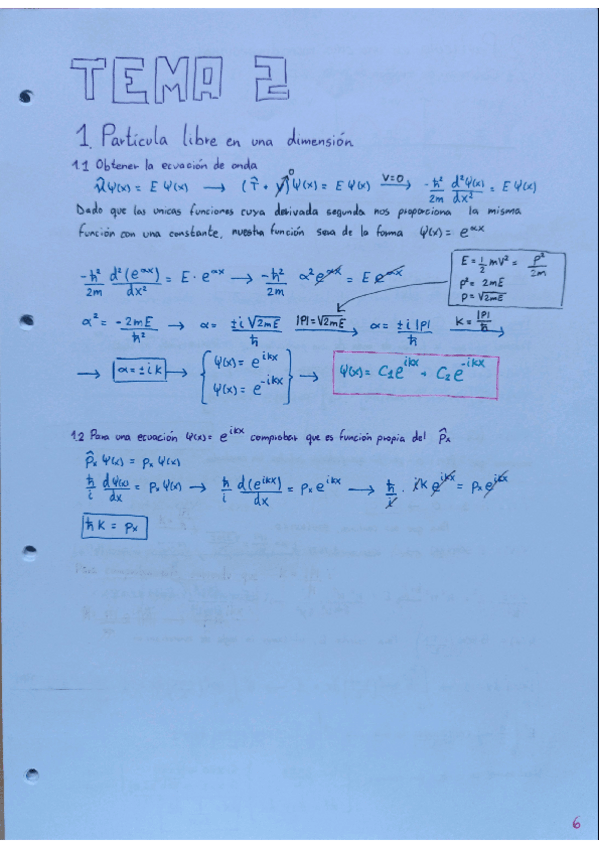 TEMA 2
1. Partícula libre en una dimensión
1.1 Obtener la ecuación de onda
ĤΨ(x) = E Ψ(x) → (T̂ + V̂)⁰Ψ(x) = E Ψ(x) —V=0→ -ħ²/2m d²Ψ(x)/dx² = E Ψ(x)
Dado que las unicas funciones cuya derivada segunda nos proporciona la misma
función con una constante, nuestra función sera de la forma Ψ(x) = e^αx
E = 1/2 mV² = p²/2m
p² = 2mE
p = √2mE
-ħ²/2m d²(e^αx)/dx² = E · e^αx → -ħ²/2m α² e^αx = E e^αx
α² = -2mE/ħ² → α = ±i√2mE/ħ —|P|=√2mE→ α = ±i|P|/ħ —K=|P|/ħ→
→ α = ±ik → { Ψ(x) = e^ikx Ψ(x) = e^-ikx → Ψ(x) = C₁e^ikx + C₂e^-ikx
1.2 Para una ecuación Ψ(x) = e^ikx comprobar que es función propia del p̂x
p̂x Ψ(x) = px Ψ(x)
ħ/i dΨ(x)/dx = px Ψ(x) → ħ/i d(e^ikx)/dx = px e^ikx → ħ/i · ik e^ikx = px e^ikx
ħk = px
6